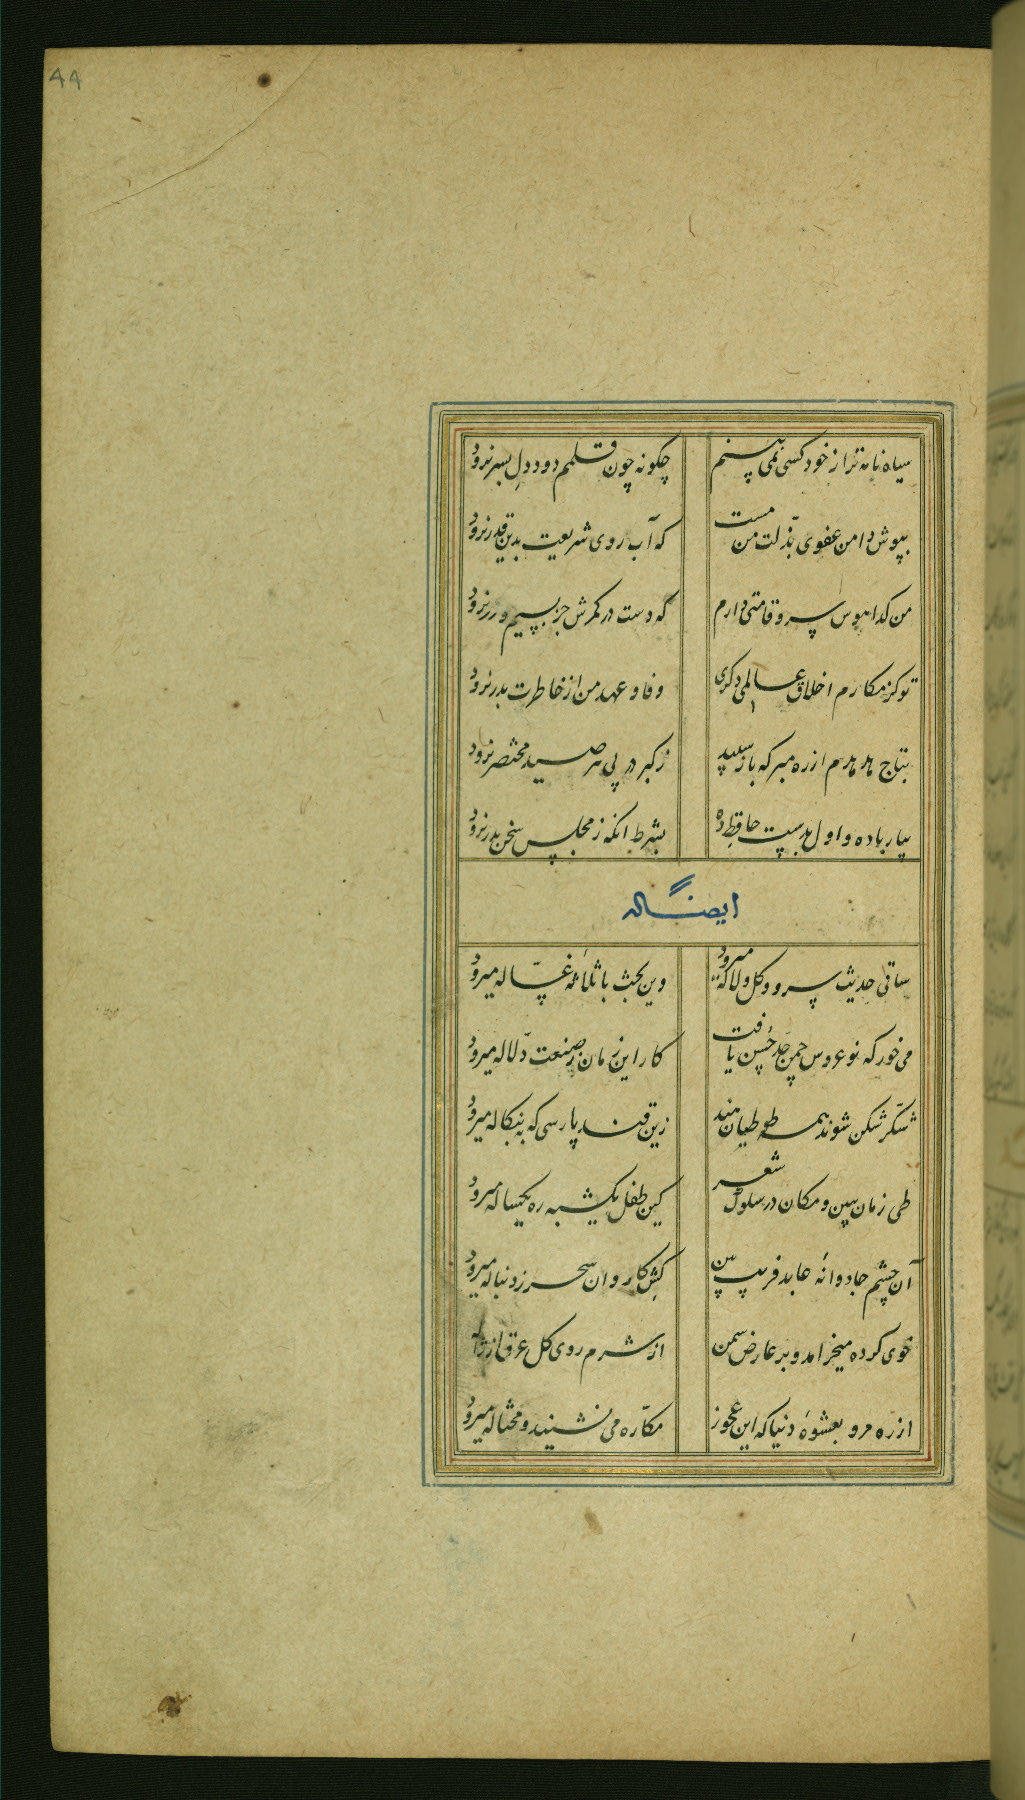 44
سیاه نامه تر از خود کسی نمی بینم چگونه چون قلمم دود دل بسر نرود
بپوش دامن عفوی بذلت من مست که آب روی شریعت بدین قدر نرود
من کدا هوس سرو قامتی دارم که دست در کمرش جز بسیم و زر نرود
تو کز مکارم اخلاق عالمی دکری وفا و عهد من از خاطرت بدر نرود
بتاج هدهدم از ره مبر که باز سپید ز کبر در پی هر صید مختصر نرود
بیار باده و اول بدست حافظ ده بشرط انکه ز مجلس سخن بدر نرود
ایضاً له
ساقی حدیث سرو و کل و لاله میرود وین بحث با ثلاثه غساله میرود
می خور که نوعروس چمن حد حسن یافت کار این زمان ز صنعت دلاله میرود
شکر شکن شوند همه طوطیان هند زین قند پارسی که به بنکاله میرود
طی زمان ببین و مکان در سلوک شعر کین طفل یکشبه ره یکساله میرود
آن چشم جادوانهٔ عابد فریب بین کش کاروان سحر ز دنباله میرود
خوی کرده میخرامد و بر عارض سمن از شرم روی کل عرق از ژاله
از ره مرو بعشوهٔ دنیا که این عجوز مکاره می نشیند و محتاله میرود